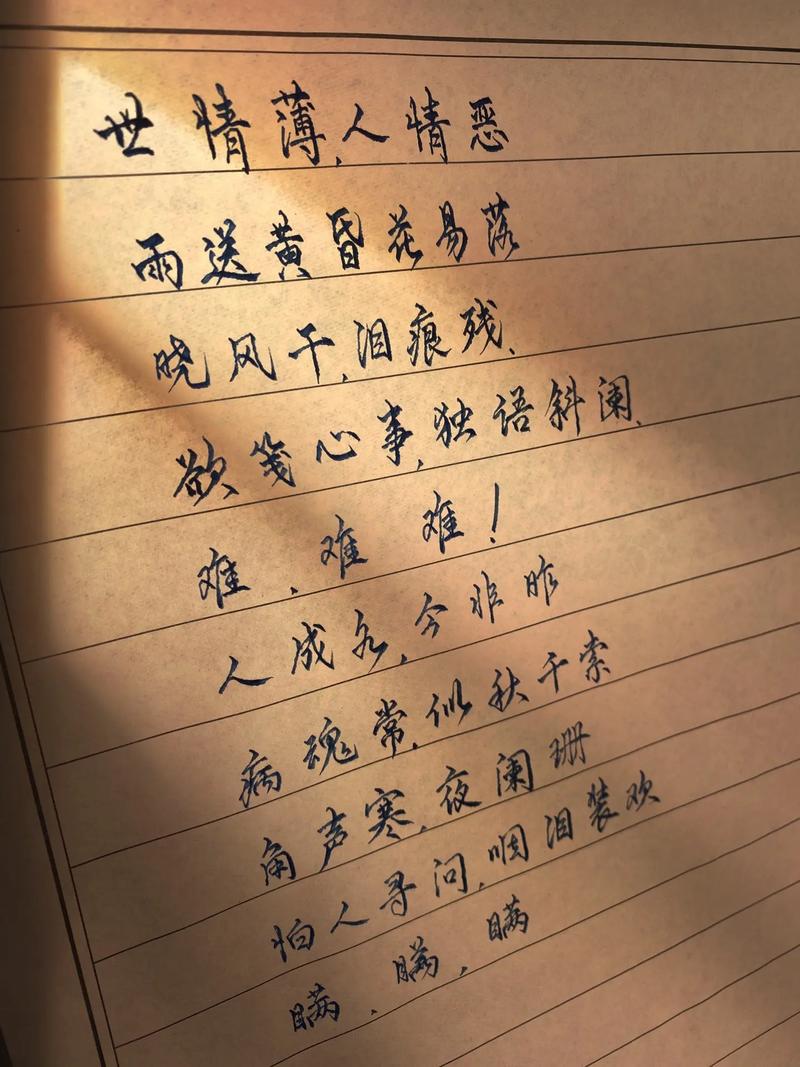 世情薄,人情恶
雨送黄昏花易落
晓风干,泪痕残、
欲笺心事,独语斜阑、
难、难 难！
人成各,今非昨
病魂常,似秋千索
角声寒,夜阑珊
怕人寻问,咽泪装欢
瞒、瞒、瞒